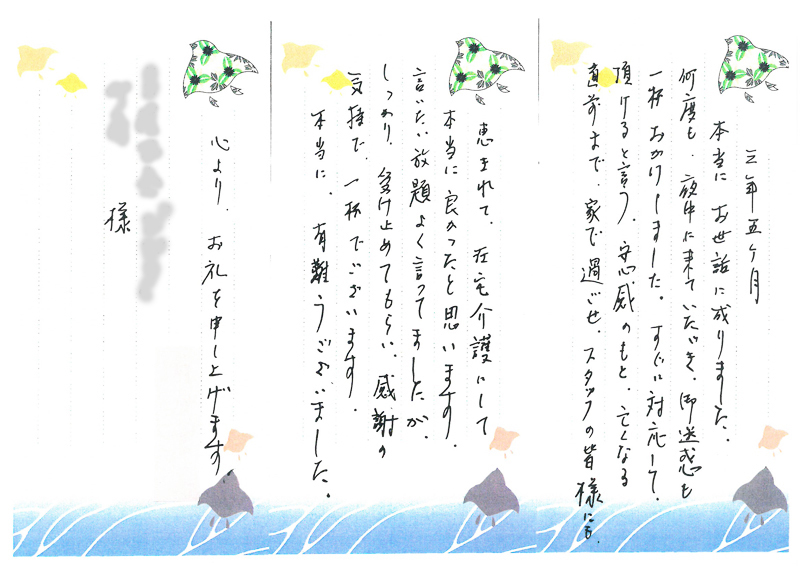 三年五ヶ月
本当に お世話に成りました。
何度も、夜中に来ていただき、御迷惑も
一杯 おかけしました。すぐに対応して、
頂けると言う、安心感のもと、亡くなる
直前まで、家で過ごせ、スタッフの皆様にも、
恵まれて、在宅介護にして
本当に良かったと思います。
言いたい放題よく言ってましたが、
しっかり、受け止めてもらい、感謝の
気持で、一杯でございます。
本当に、有難うございました。
心より、お礼を申し上げます。
様